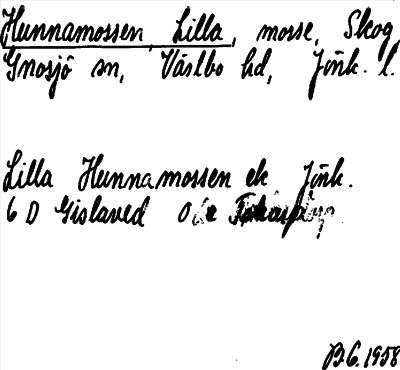 Hunnamossen, Lilla, mosse, Skog
Gnosjö sn, Västbo hd, Jönk. l.
Lilla Hunnamossen ek Jönk.
6 D Gislaved
BG. 1958